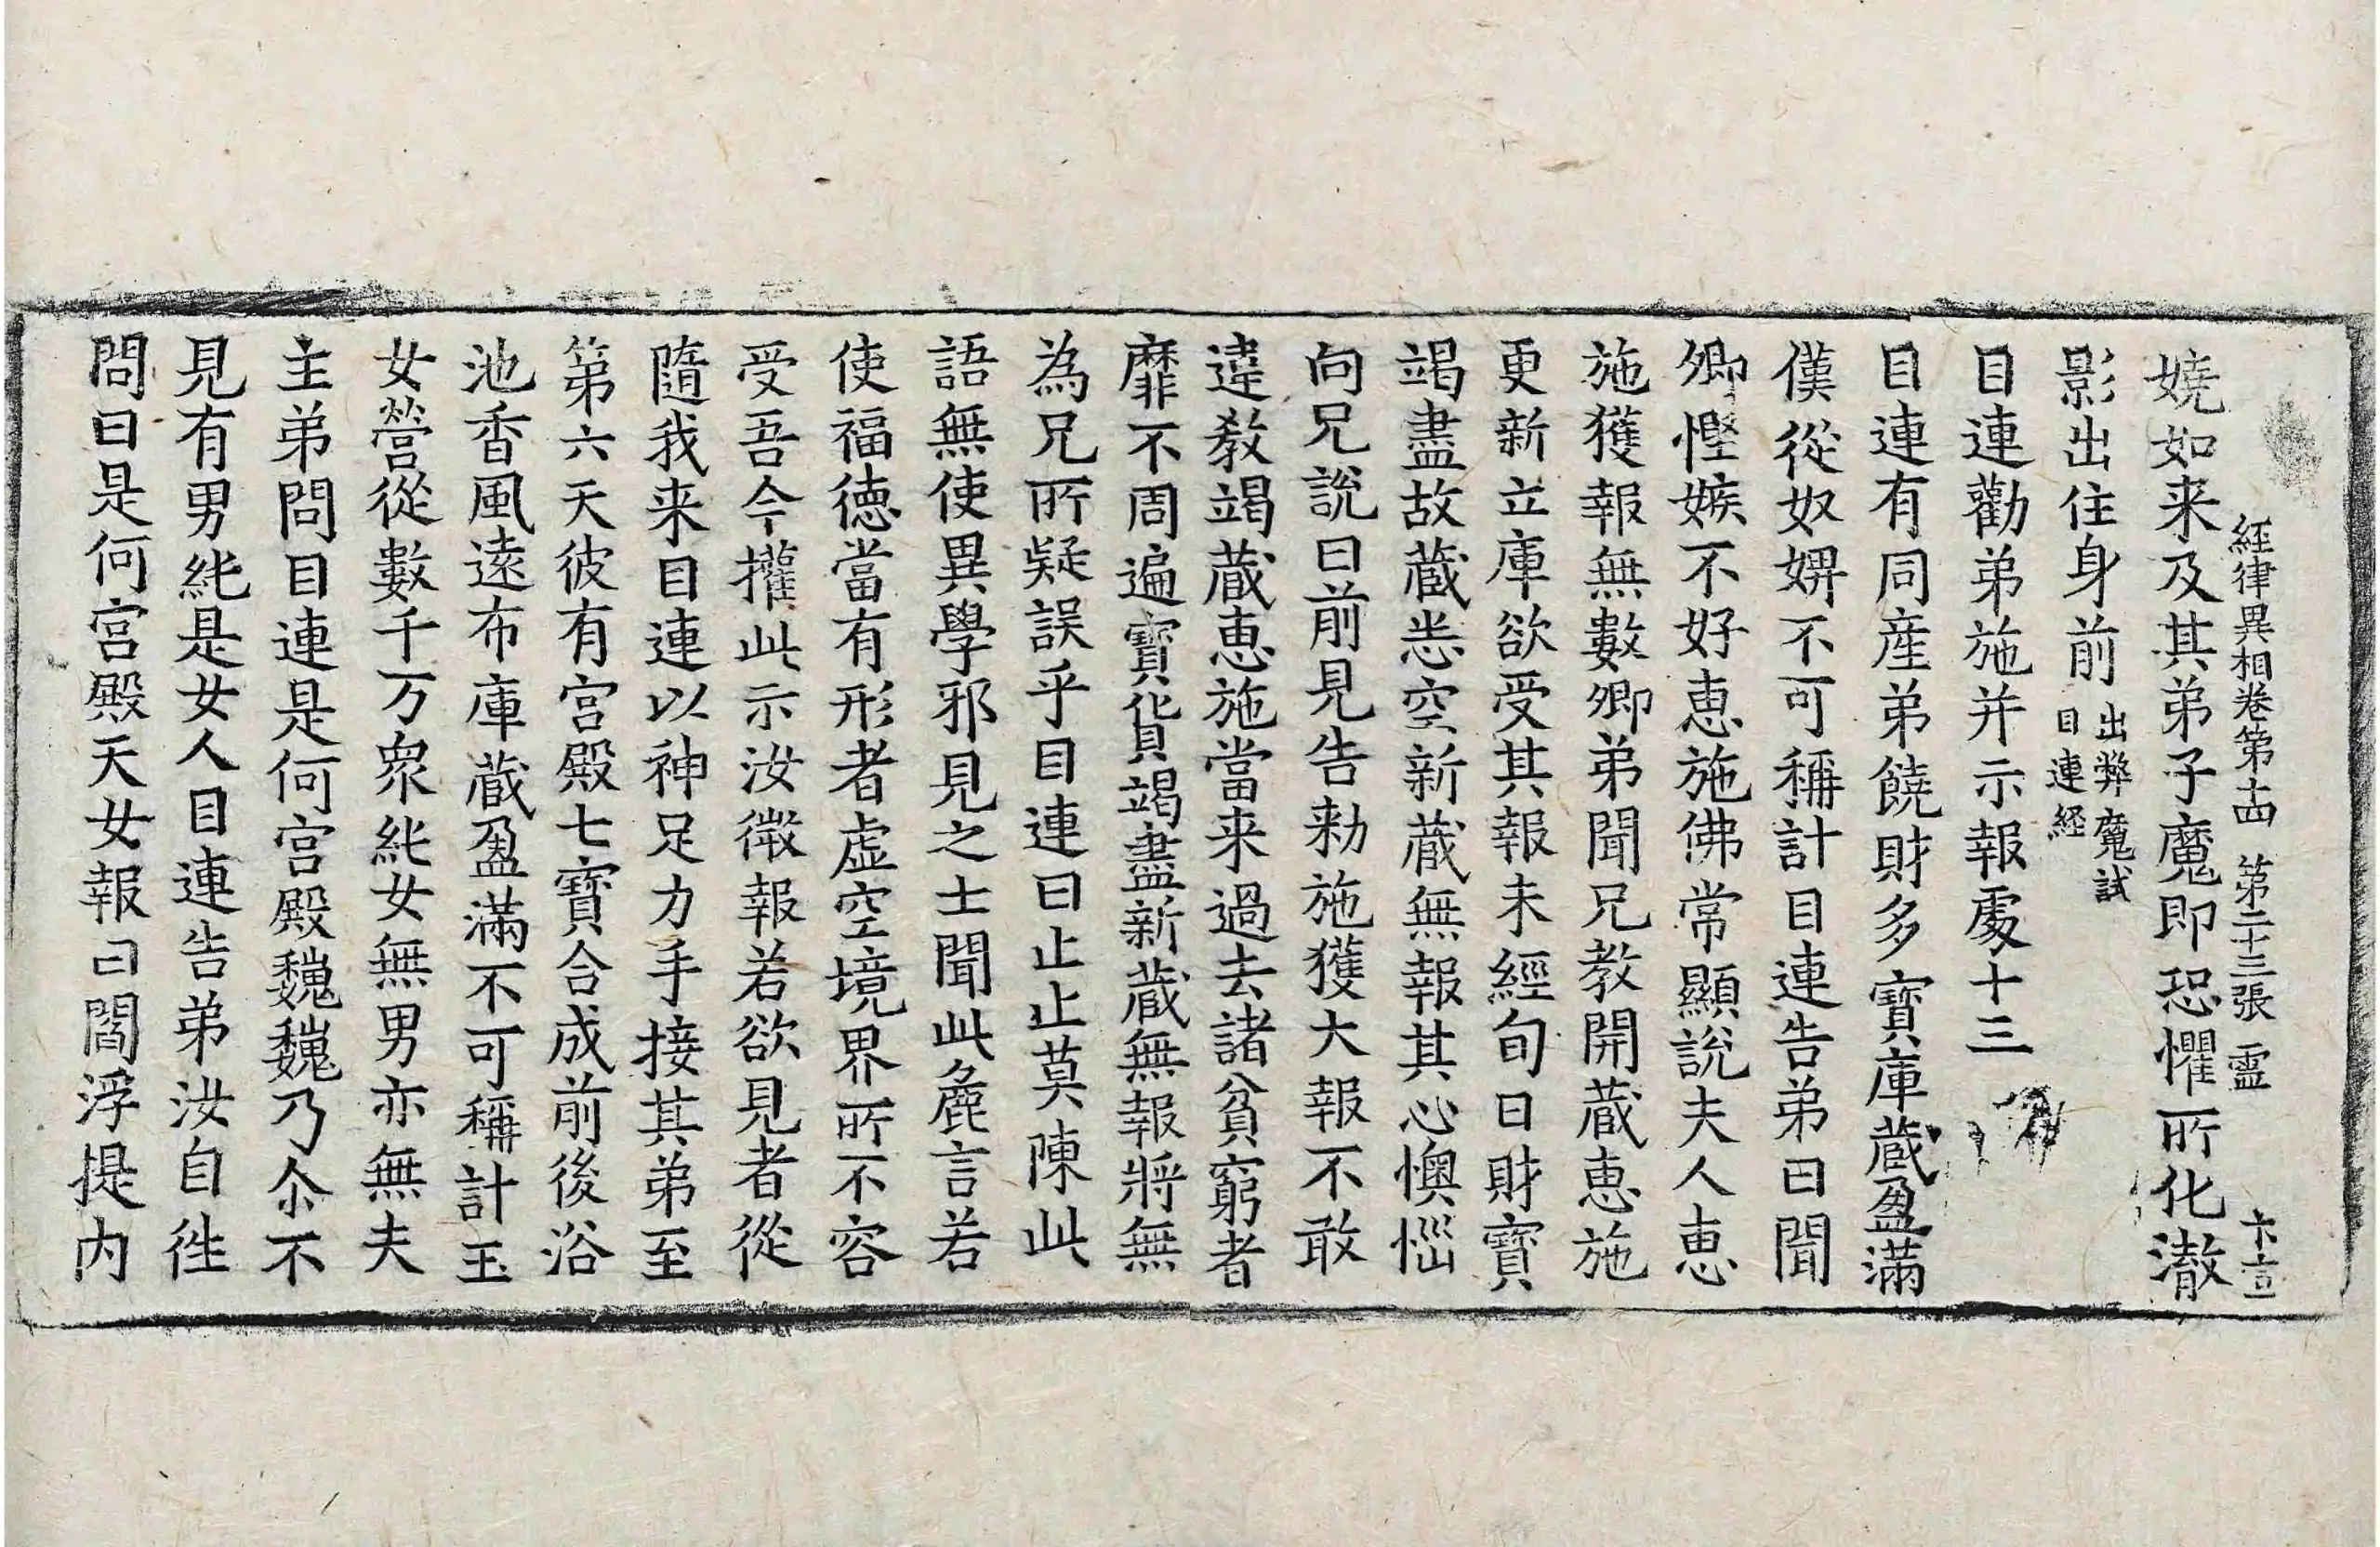 經律異相卷第十四 第二十三張 霊
嬈如来及其弟子魔即恐懼所化澈
影出住身前 出弊魔試目連経
目連勸弟施并示報處十三
目連有同産弟饒財多寳庫蔵盈滿
僕從奴婢不可稱計目連告弟曰聞
卿慳嫉不好恵施佛常顯說夫人恵
施獲報無數卿弟聞兄教開蔵恵施
更新立庫欲受其報未經旬日財寳
竭盡故蔵悉空新蔵無報其心懊惱
向兄說曰前見告勑施獲大報不敢
違教竭蔵恵施當来過去諸貧窮者
靡不周遍寳貨竭盡新蔵無報將無
為兄所疑誤乎目連曰止止莫陳此
語無使異學邪見之士聞此麁言若
使福徳當有形者虚空境界所不容
受吾今權此示汝微報若欲見者從
隨我来目連以神足力手接其弟至
第六天彼有宮殿七寳合成前後浴
池香風遠布庫蔵盈滿不可稱計玉
女營從數千万衆純女無男亦無夫
主弟問目連是何宮殿巍巍乃尒不
見有男純是女人目連告弟汝自徃
問曰是何宮殿天女報曰閻浮提内